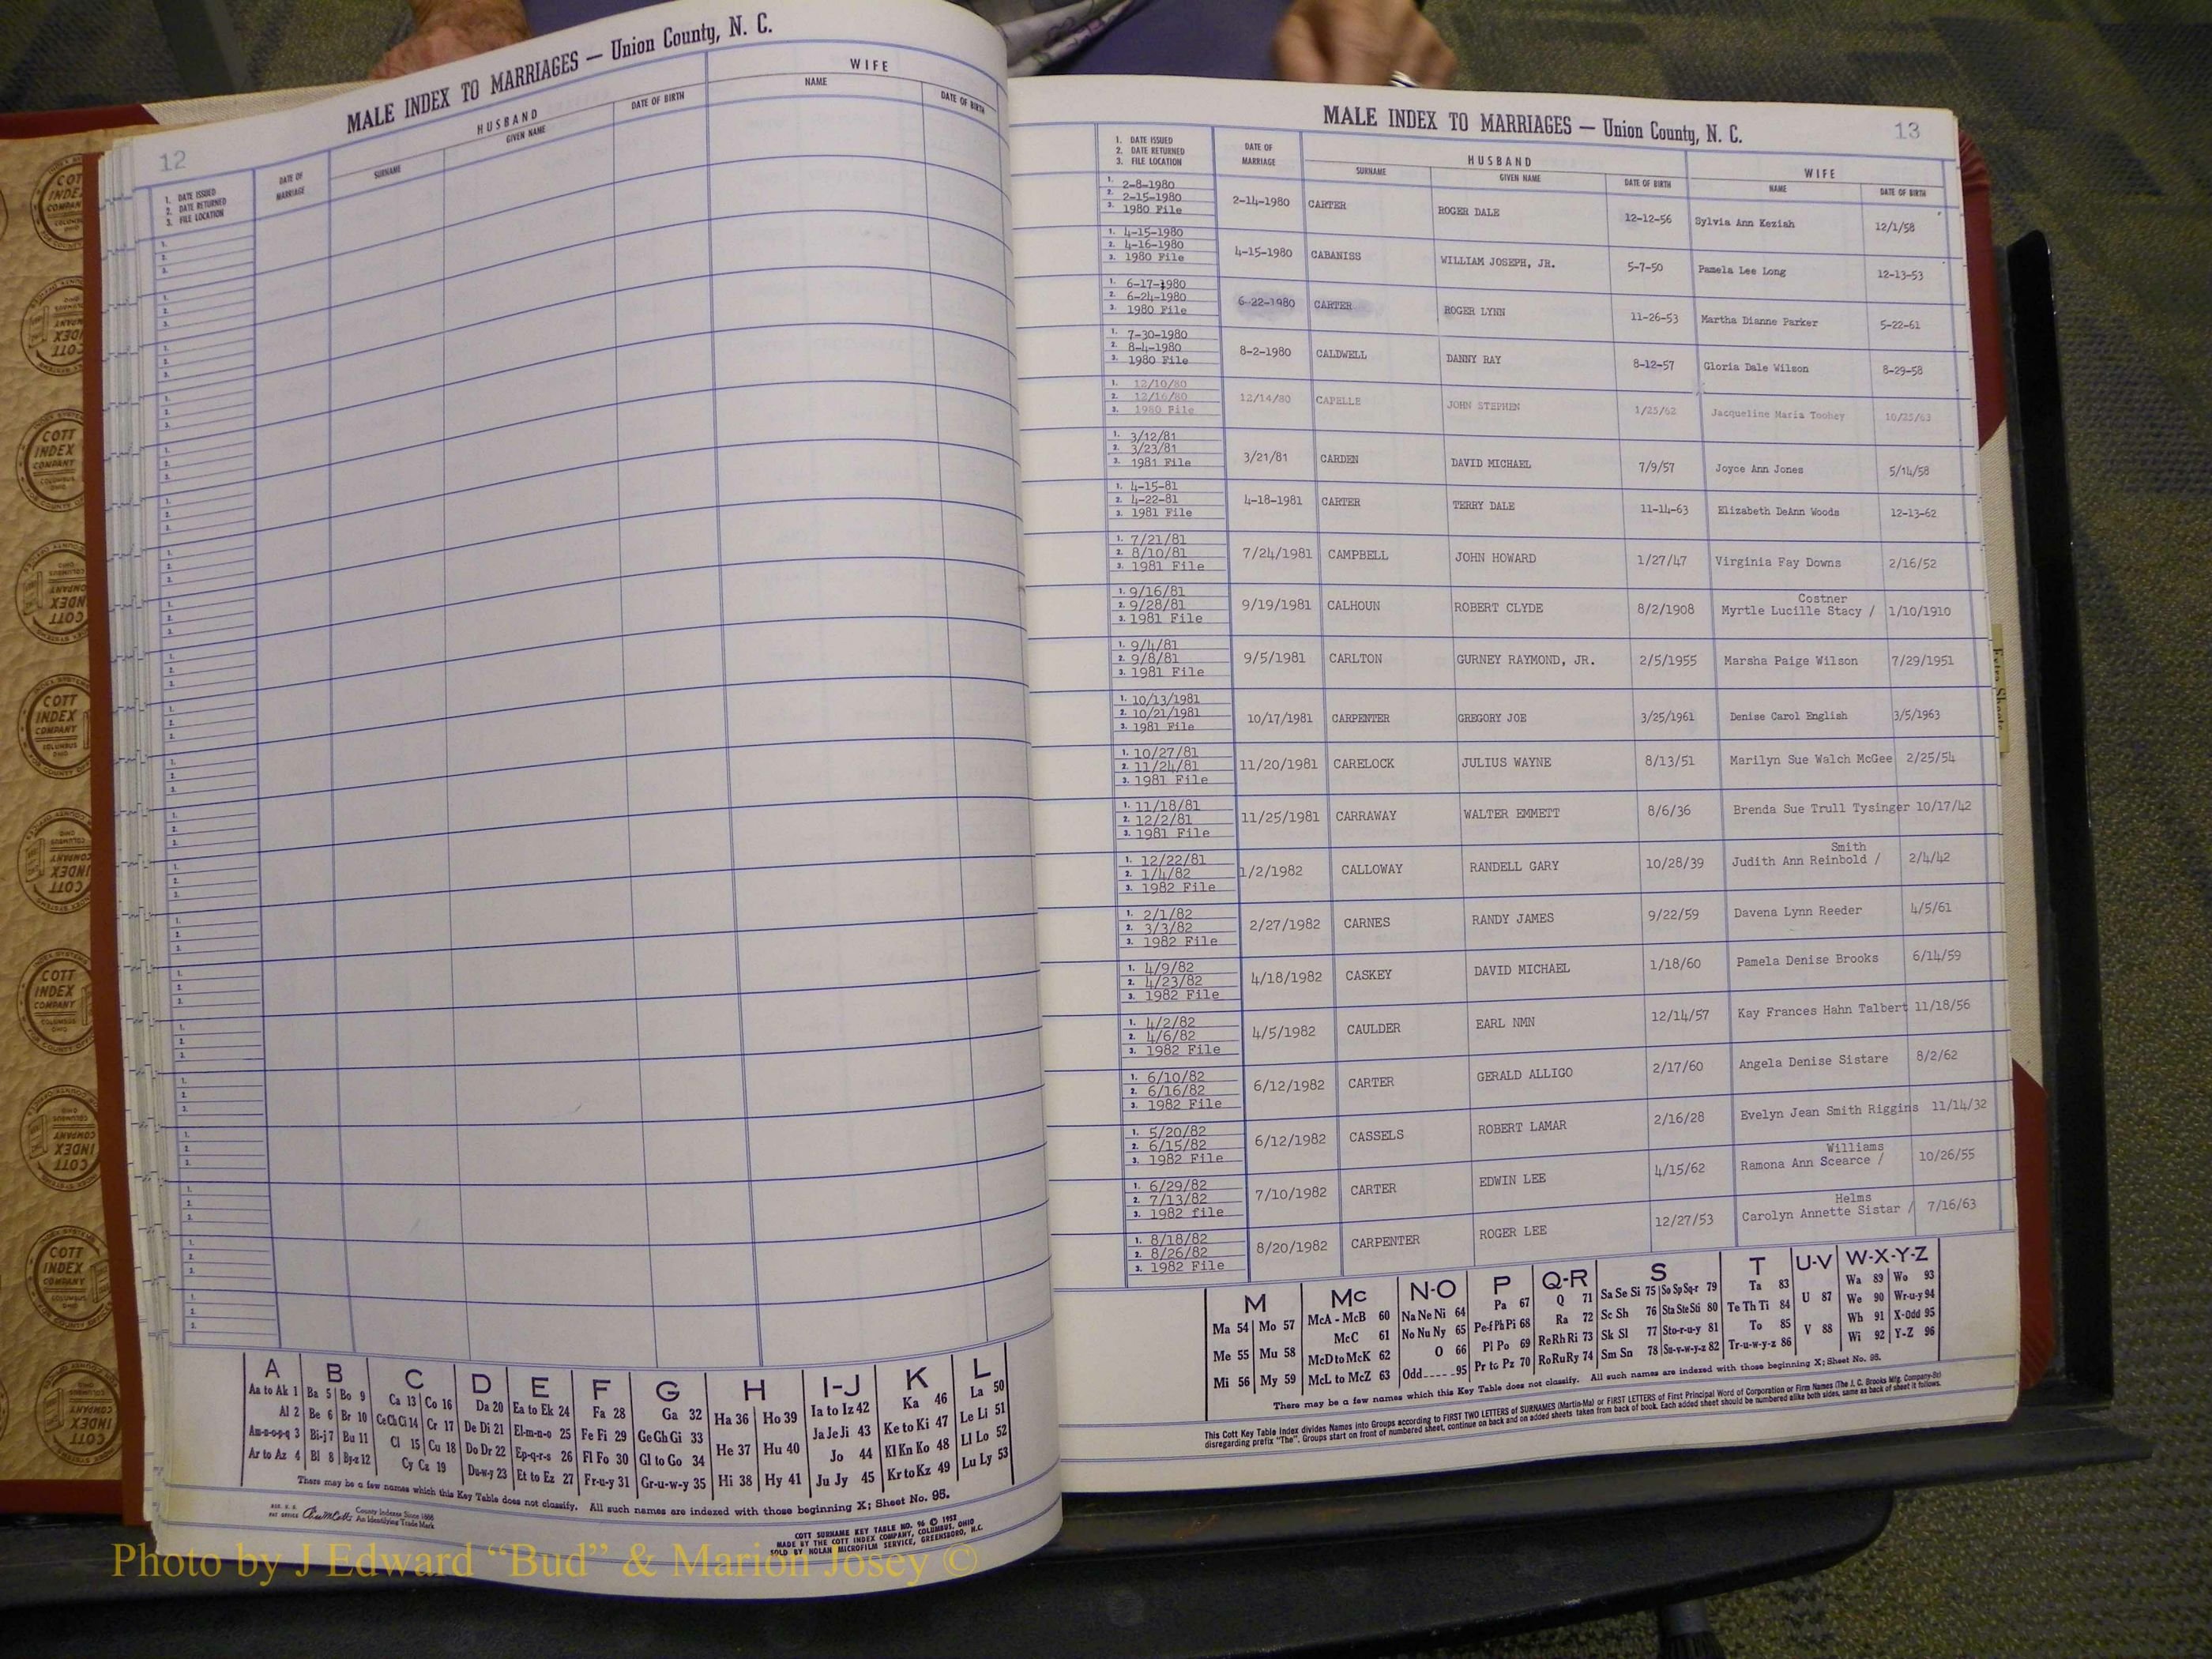 MALE INDEX TO MARRIAGES — Union County, N. C.
12
1. DATE ISSUED
2. DATE RETURNED
3. FILE LOCATION
DATE OF MARRIAGE
HUSBAND
SURNAME GIVEN NAME DATE OF BIRTH
WIFE
NAME DATE OF BIRTH
A B C D E F G H I-J K L
Aa to Ak 1 Ba 5 Bo 9 Ca 13 Co 16 Da 20 Ea to Ek 24 Fa 28 Ga 32 Ha 36 Ho 39 Ia to Iz 42 Ka 46 La 50
Al 2 Be 6 Br 10 Ce Ch Ci 14 Cr 17 De Di 21 El-m-n-o 25 Fe Fi 29 Ge Gh Gi 33 He 37 Hu 40 Ja Je Ji 43 Ke to Ki 47 Le Li 51
Am-n-o-p-q 3 Bi-j 7 Bu 11 Cl 15 Cu 18 Do Dr 22 Ep-q-r-s 26 Fl Fo 30 Gl to Go 34 Hi 38 Hy 41 Jo 44 Kl Kn Ko 48 Ll Lo 52
Ar to Az 4 Bl 8 By-z 12 Cy Cz 19 Du-w-y 23 Et to Ez 27 Fr-u-y 31 Gr-u-w-y 35 Ju Jy 45 Kr to Kz 49 Lu Ly 53
There may be a few names which this Key Table does not classify. All such names are indexed with those beginning X; Sheet No. 95.
County Indexes Since 1888
An Identifying Trade Mark
COTT SURNAME KEY TABLE NO. 96 © 1952
MADE BY THE COTT INDEX COMPANY, COLUMBUS, OHIO
SOLD BY NOLAN MICROFILM SERVICE, GREENSBORO, N.C.
MALE INDEX TO MARRIAGES — Union County, N. C.
13
1. DATE ISSUED
2. DATE RETURNED
3. FILE LOCATION
DATE OF MARRIAGE
HUSBAND
SURNAME GIVEN NAME DATE OF BIRTH
WIFE
NAME DATE OF BIRTH
1. 2-8-1980
2. 2-15-1980
3. 1980 File
2-14-1980 CARTER ROGER DALE 12-12-56 Sylvia Ann Keziah 12/1/58
1. 4-15-1980
2. 4-16-1980
3. 1980 File
4-15-1980 CABANISS WILLIAM JOSEPH, JR. 5-7-50 Pamela Lee Long 12-13-53
1. 6-17-1980
2. 6-24-1980
3. 1980 File
6-22-1980 CARTER ROGER LYNN 11-26-53 Martha Dianne Parker 5-22-61
1. 7-30-1980
2. 8-4-1980
3. 1980 File
8-2-1980 CALDWELL DANNY RAY 8-12-57 Gloria Dale Wilson 8-29-58
1. 12/10/80
2. 12/16/80
3. 1980 File
12/14/80 CAPELLE JOHN STEPHEN 1/25/62 Jacqueline Maria Toohey 10/25/63
1. 3/12/81
2. 3/23/81
3. 1981 File
3/21/81 CARDEN DAVID MICHAEL 7/9/57 Joyce Ann Jones 5/14/58
1. 4-15-81
2. 4-22-81
3. 1981 File
4-18-1981 CARTER TERRY DALE 11-14-63 Elizabeth DeAnn Woods 12-13-62
1. 7/21/81
2. 8/10/81
3. 1981 File
7/24/1981 CAMPBELL JOHN HOWARD 1/27/47 Virginia Fay Downs 2/16/52
1. 9/16/81
2. 9/28/81
3. 1981 File
Costner
9/19/1981 CALHOUN ROBERT CLYDE 8/2/1908 Myrtle Lucille Stacy / 1/10/1910
1. 9/4/81
2. 9/8/81
3. 1981 File
9/5/1981 CARLTON GURNEY RAYMOND, JR. 2/5/1955 Marsha Paige Wilson 7/29/1951
1. 10/13/1981
2. 10/21/1981
3. 1981 File
10/17/1981 CARPENTER GREGORY JOE 3/25/1961 Denise Carol English 3/5/1963
1. 10/27/81
2. 11/24/81
3. 1981 File
11/20/1981 CARELOCK JULIUS WAYNE 8/13/51 Marilyn Sue Walch McGee 2/25/54
1. 11/18/81
2. 12/2/81
3. 1981 File
11/25/1981 CARRAWAY WALTER EMMETT 8/6/36 Brenda Sue Trull Tysinger 10/17/42
1. 12/22/81
2. 1/4/82
3. 1982 File
Smith
1/2/1982 CALLOWAY RANDELL GARY 10/28/39 Judith Ann Reinbold / 2/4/42
1. 2/1/82
2. 3/3/82
3. 1982 File
2/27/1982 CARNES RANDY JAMES 9/22/59 Davena Lynn Reeder 4/5/61
1. 4/9/82
2. 4/23/82
3. 1982 File
4/18/1982 CASKEY DAVID MICHAEL 1/18/60 Pamela Denise Brooks 6/14/59
1. 4/2/82
2. 4/6/82
3. 1982 File
4/5/1982 CAULDER EARL NMN 12/14/57 Kay Frances Hahn Talbert 11/18/56
1. 6/10/82
2. 6/16/82
3. 1982 File
6/12/1982 CARTER GERALD ALLIGO 2/17/60 Angela Denise Sistare 8/2/62
1. 5/20/82
2. 6/15/82
3. 1982 File
6/12/1982 CASSELS ROBERT LAMAR 2/16/28 Evelyn Jean Smith Riggins 11/14/32
1. 6/29/82
2. 7/13/82
3. 1982 file
Williams
7/10/1982 CARTER EDWIN LEE 4/15/62 Ramona Ann Scearce / 10/26/55
1. 8/18/82
2. 8/26/82
3. 1982 File
Helms
8/20/1982 CARPENTER ROGER LEE 12/27/53 Carolyn Annette Sistar / 7/16/63
M Mc N-O P Q-R S T U-V W-X-Y-Z
Ma 54 Mo 57 McA - McB 60 Na Ne Ni 64 Pa 67 Q 71 Sa Se Si 75 So Sp Sq-r 79 Ta 83 U 87 Wa 89 Wo 93
Me 55 Mu 58 McC 61 No Nu Ny 65 Pe-f Ph Pi 68 Ra 72 Sc Sh 76 Sta Ste Sti 80 Te Th Ti 84 V 88 We 90 Wr-u-y 94
McD to McK 62 O 66 Pl Po 69 Re Rh Ri 73 Sk Sl 77 Sto-r-u-y 81 To 85 Wh 91 X-Odd 95
Mi 56 My 59 McL to McZ 63 Odd 95 Pr to Pz 70 Ro Ru Ry 74 Sm Sn 78 Su-v-w-y-z 82 Tr-u-w-y-z 86 Wi 92 Y-Z 96
There may be a few names which this Key Table does not classify. All such names are indexed with those beginning X; Sheet No. 95.
This Cott Key Table Index divides Names into Groups according to FIRST TWO LETTERS of SURNAMES (Martin-Ma) or FIRST LETTERS of First Principal Word of Corporation or Firm Names (The J. C. Brooks Mfg. Company-Br)
disregarding prefix "The". Groups start on front of numbered sheet, continue on back and on added sheets taken from back of book. Each added sheet should be numbered alike both sides, same as back of sheet it follows.
COTT INDEX COMPANY
COLUMBUS OHIO
Extra Sheets
Photo by J Edward “Bud” & Marion Josey ©